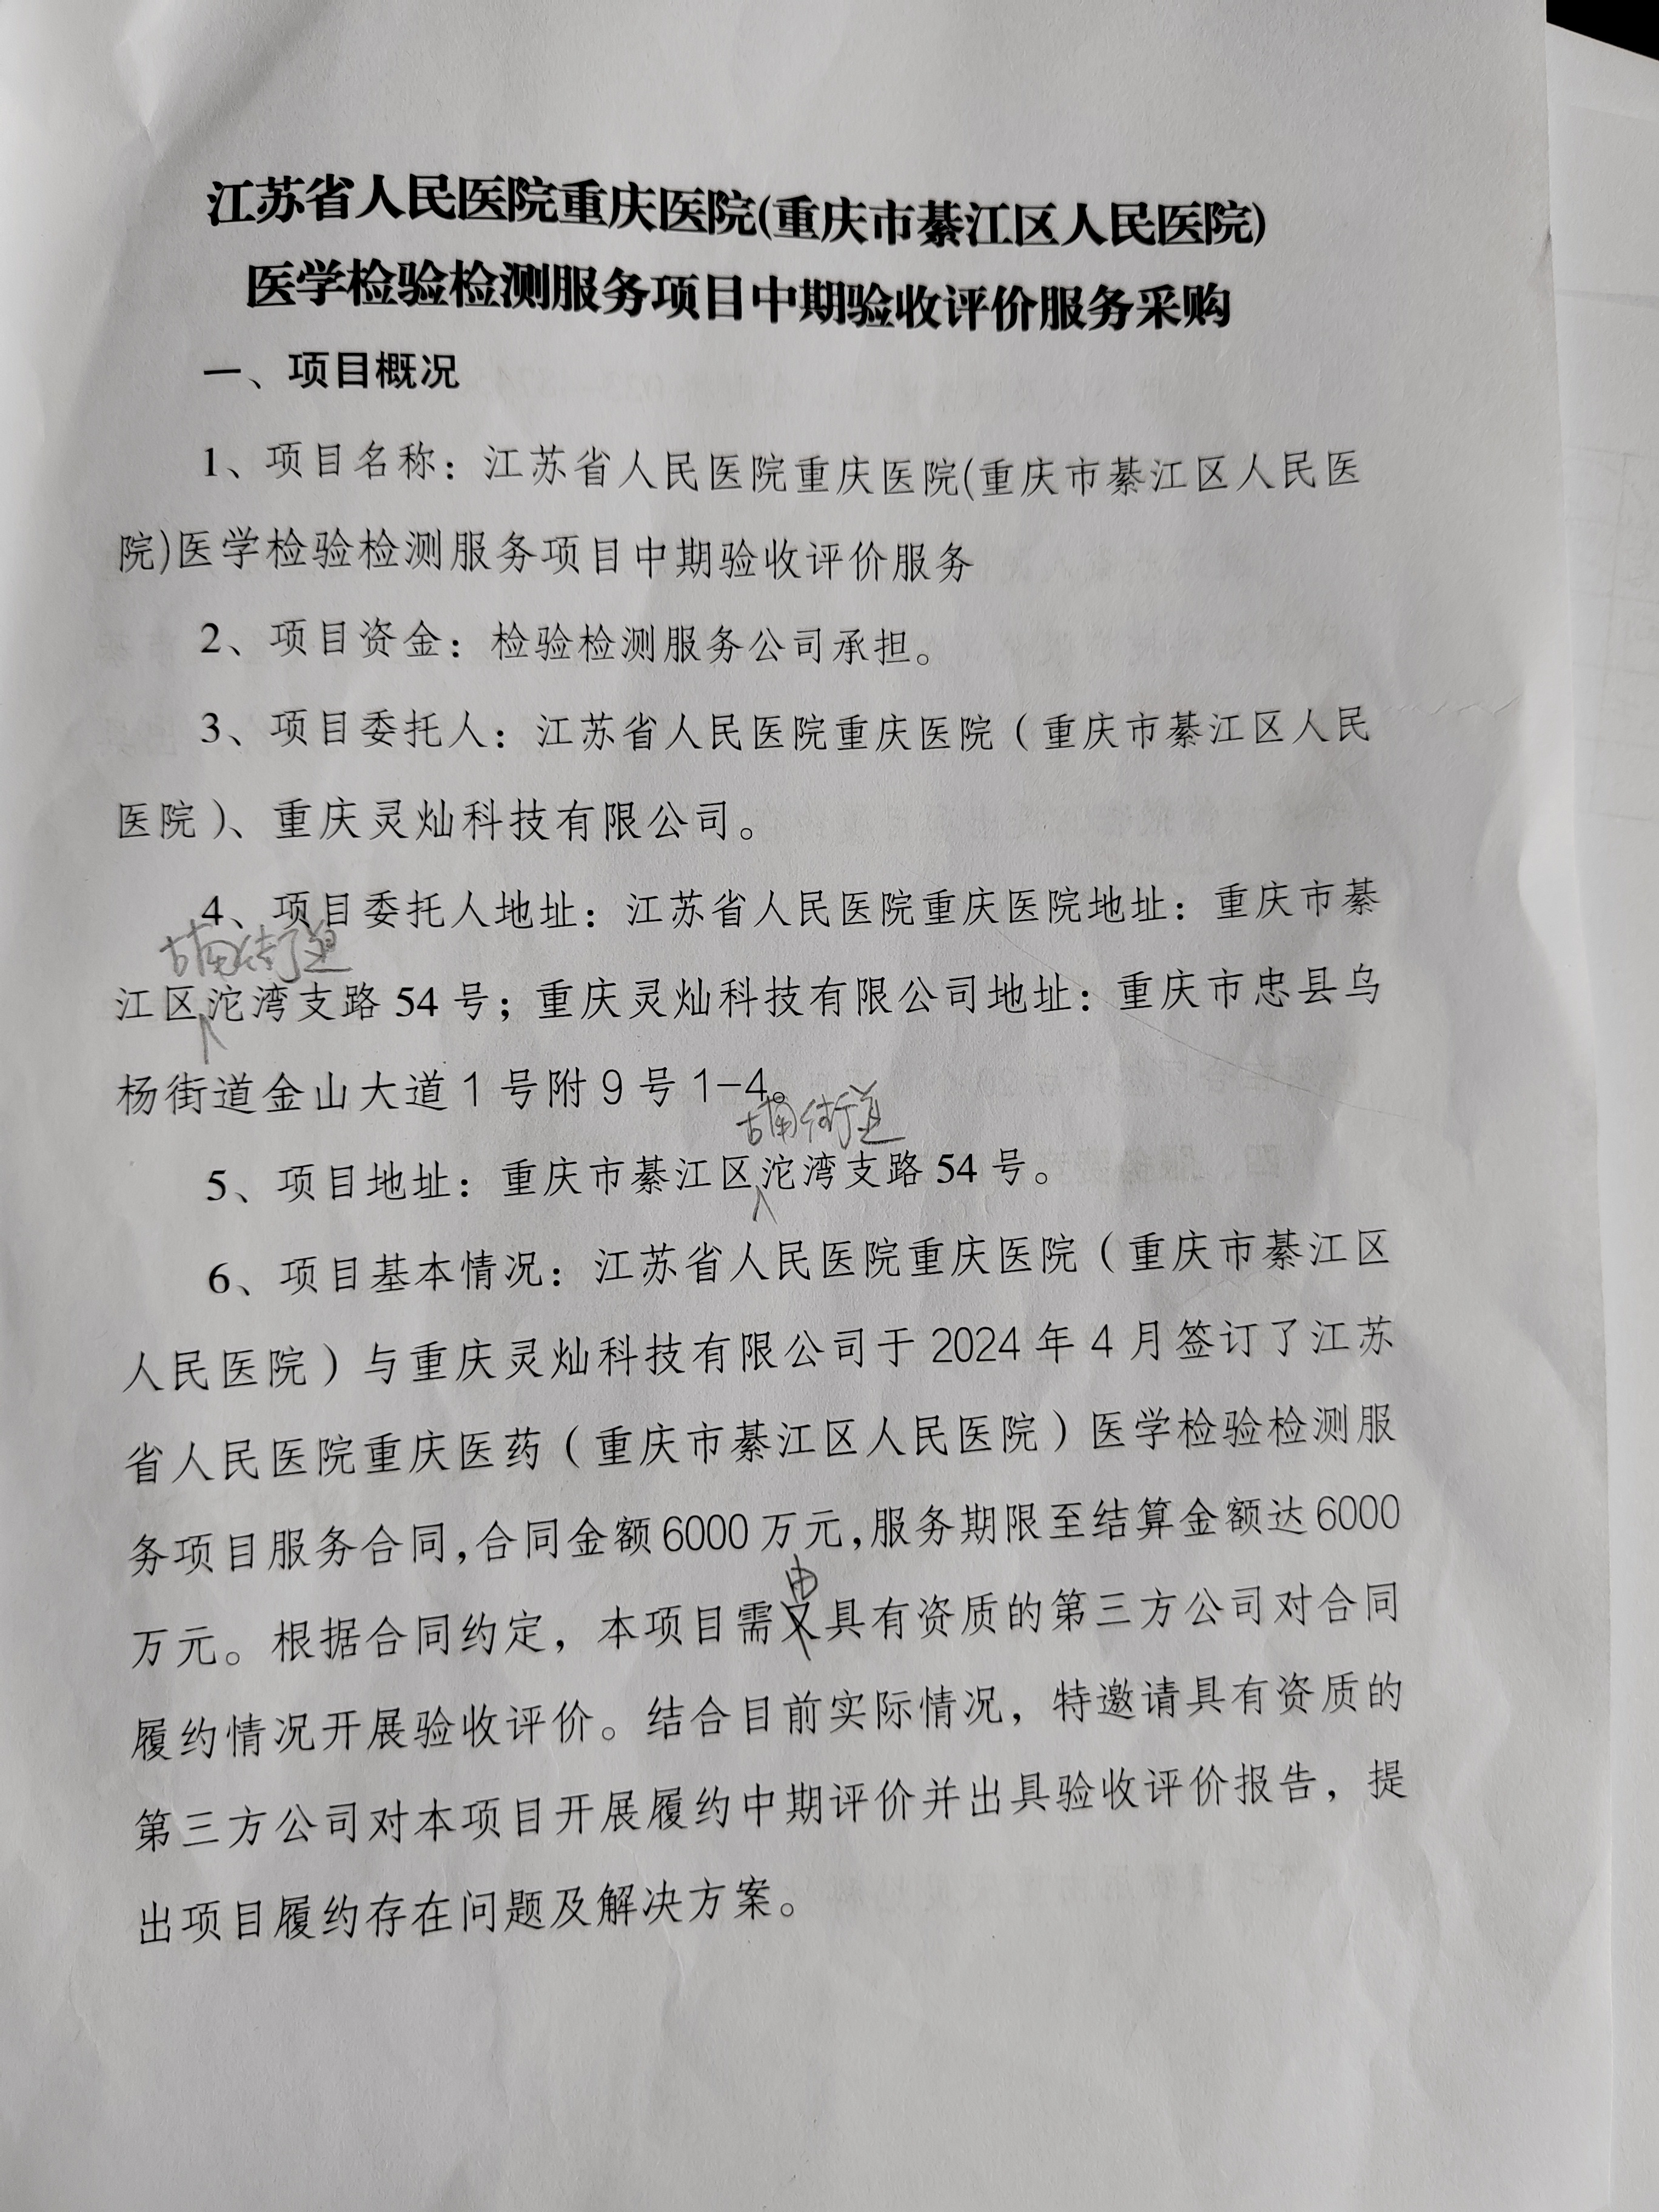 江苏省人民医院重庆医院(重庆市綦江区人民医院)
医学检验检测服务项目中期验收评价服务采购
一、项目概况
1、项目名称：江苏省人民医院重庆医院(重庆市綦江区人民医
院)医学检验检测服务项目中期验收评价服务
2、项目资金：检验检测服务公司承担。
3、项目委托人：江苏省人民医院重庆医院（重庆市綦江区人民
医院）、重庆灵灿科技有限公司。
4、项目委托人地址：江苏省人民医院重庆医院地址：重庆市綦
古南街道
江区沱湾支路 54 号；重庆灵灿科技有限公司地址：重庆市忠县乌
杨街道金山大道 1 号附 9 号 1-4。
古南街道
5、项目地址：重庆市綦江区沱湾支路 54 号。
6、项目基本情况：江苏省人民医院重庆医院（重庆市綦江区
人民医院）与重庆灵灿科技有限公司于 2024 年 4 月签订了江苏
省人民医院重庆医药（重庆市綦江区人民医院）医学检验检测服
务项目服务合同,合同金额 6000 万元,服务期限至结算金额达 6000
由
万元。根据合同约定，本项目需又具有资质的第三方公司对合同
履约情况开展验收评价。结合目前实际情况，特邀请具有资质的
第三方公司对本项目开展履约中期评价并出具验收评价报告，提
出项目履约存在问题及解决方案。